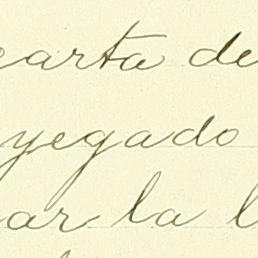 carta de
yegado
ar la l